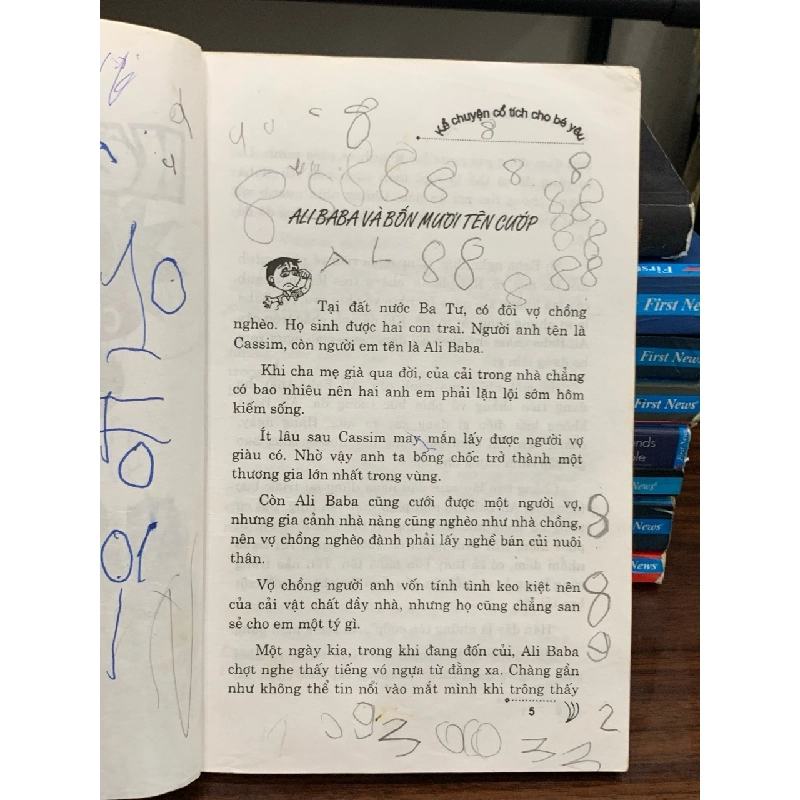 Kể chuyện cổ tích cho bé yêu
ALI BABA VÀ BỐN MƯƠI TÊN CƯỚP
A L
Tại đất nước Ba Tư, có đôi vợ chồng
nghèo. Họ sinh được hai con trai. Người anh tên là
Cassim, còn người em tên là Ali Baba.
Khi cha mẹ già qua đời, của cải trong nhà chẳng
có bao nhiêu nên hai anh em phải lặn lội sớm hôm
kiếm sống.
Ít lâu sau Cassim may mắn lấy được người vợ
giàu có. Nhờ vậy anh ta bỗng chốc trở thành một
thương gia lớn nhất trong vùng.
Còn Ali Baba cũng cưới được một người vợ,
nhưng gia cảnh nhà nàng cũng nghèo như nhà chồng,
nên vợ chồng nghèo đành phải lấy nghề bán củi nuôi
thân.
Vợ chồng người anh vốn tính tình keo kiệt nên
của cải vật chất đầy nhà, nhưng họ cũng chẳng san
sẻ cho em một tý gì.
Một ngày kia, trong khi đang đốn củi, Ali Baba
chợt nghe thấy tiếng vó ngựa từ đằng xa. Chàng gần
như không thể tin nổi vào mắt mình khi trông thấy
5
First
First Ne
First News
First News
News
News
News